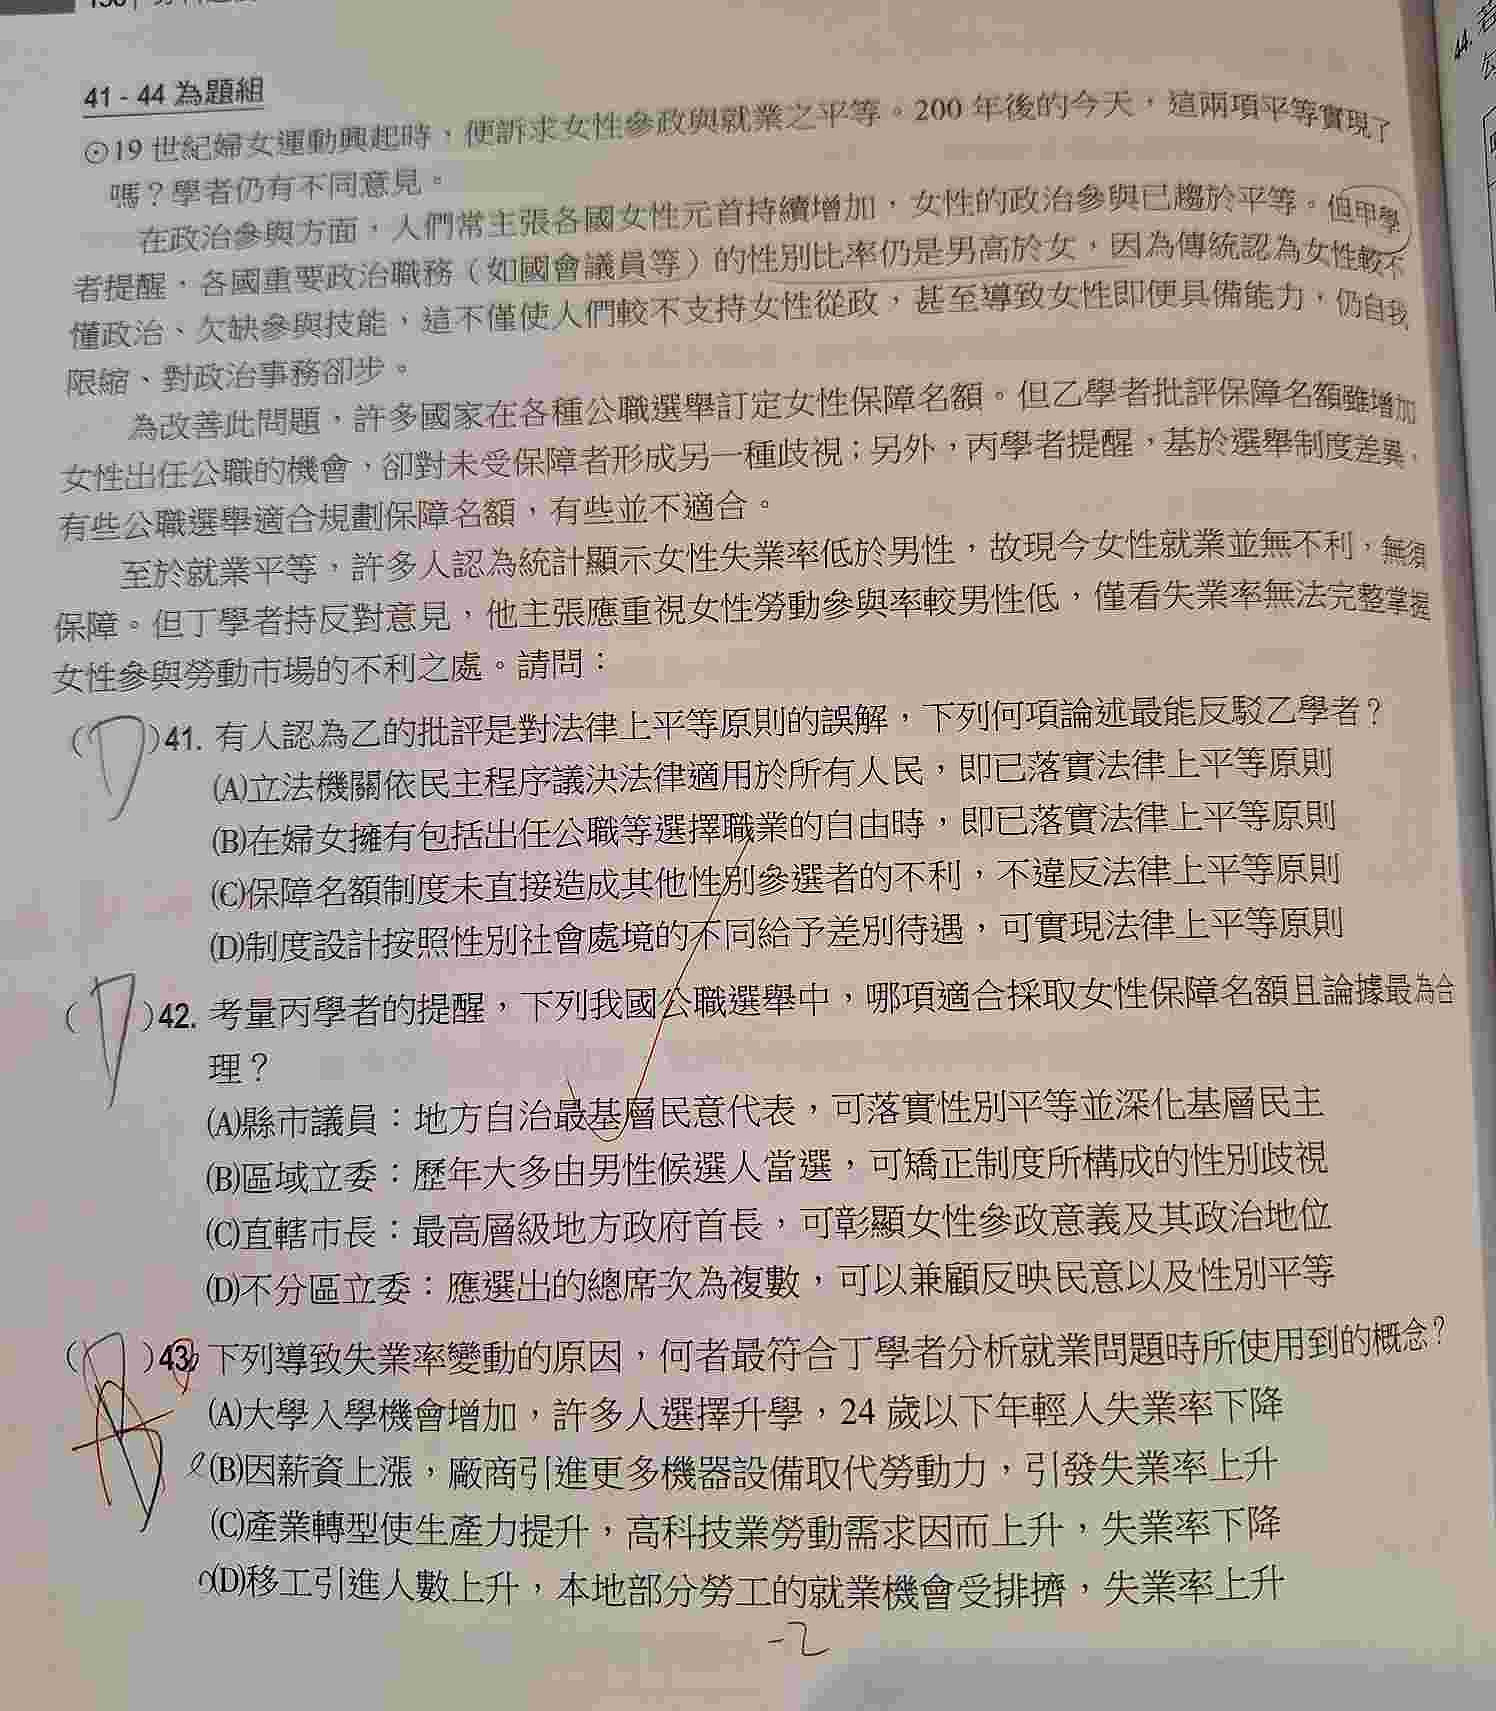 41 - 44 為題組
⊙19 世紀婦女運動興起時，便訴求女性參政與就業之平等。200 年後的今天，這兩項平等實現了
嗎？學者仍有不同意見。
在政治參與方面，人們常主張各國女性元首持續增加，女性的政治參與已趨於平等。但甲學
者提醒，各國重要政治職務（如國會議員等）的性別比率仍是男高於女，因為傳統認為女性較不
懂政治、欠缺參與技能，這不僅使人們較不支持女性從政，甚至導致女性即便具備能力，仍自我
限縮、對政治事務卻步。
為改善此問題，許多國家在各種公職選舉訂定女性保障名額。但乙學者批評保障名額雖增加
女性出任公職的機會，卻對未受保障者形成另一種歧視；另外，丙學者提醒，基於選舉制度差異，
有些公職選舉適合規劃保障名額，有些並不適合。
至於就業平等，許多人認為統計顯示女性失業率低於男性，故現今女性就業並無不利，無須
保障。但丁學者持反對意見，他主張應重視女性勞動參與率較男性低，僅看失業率無法完整掌握
女性參與勞動市場的不利之處。請問：
(D)41. 有人認為乙的批評是對法律上平等原則的誤解，下列何項論述最能反駁乙學者？
(A)立法機關依民主程序議決法律適用於所有人民，即已落實法律上平等原則
(B)在婦女擁有包括出任公職等選擇職業的自由時，即已落實法律上平等原則
(C)保障名額制度未直接造成其他性別參選者的不利，不違反法律上平等原則
(D)制度設計按照性別社會處境的不同給予差別待遇，可實現法律上平等原則
(D)42. 考量丙學者的提醒，下列我國公職選舉中，哪項適合採取女性保障名額且論據最為合
理？
(A)縣市議員：地方自治最基層民意代表，可落實性別平等並深化基層民主
(B)區域立委：歷年大多由男性候選人當選，可矯正制度所構成的性別歧視
(C)直轄市長：最高層級地方政府首長，可彰顯女性參政意義及其政治地位
(D)不分區立委：應選出的總席次為複數，可以兼顧反映民意以及性別平等
( )43. 下列導致失業率變動的原因，何者最符合丁學者分析就業問題時所使用到的概念？
(A)大學入學機會增加，許多人選擇升學，24 歲以下年輕人失業率下降
(B)因薪資上漲，廠商引進更多機器設備取代勞動力，引發失業率上升
(C)產業轉型使生產力提升，高科技業勞動需求因而上升，失業率下降
(D)移工引進人數上升，本地部分勞工的就業機會受排擠，失業率上升
-2
44.